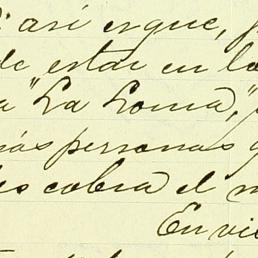 así es que,
de estar en la
a "La Loma,"
más personas
cobra el
En vi